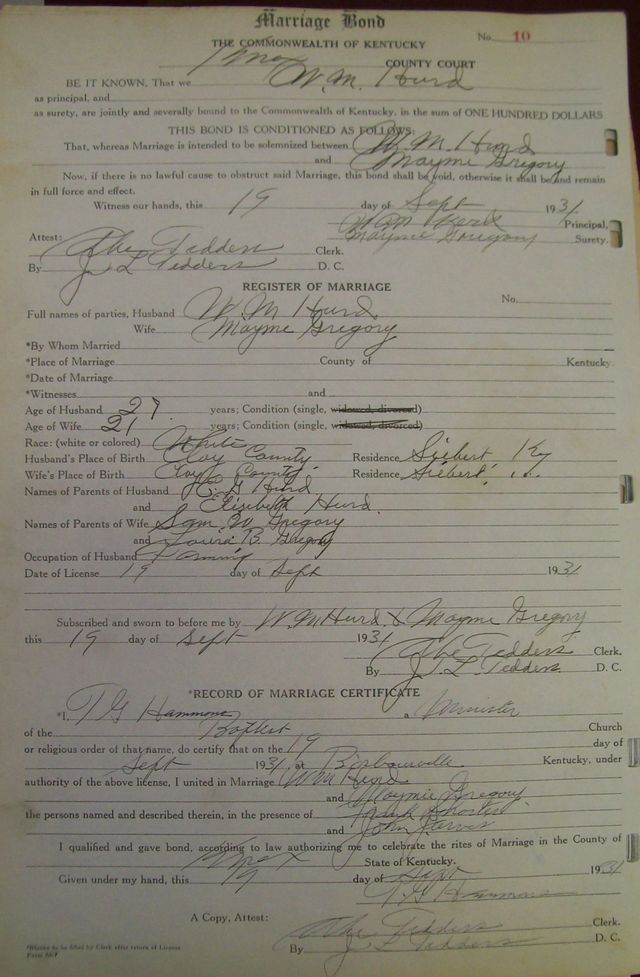 Marriage Bond
No. 10
THE COMMONWEALTH OF KENTUCKY
Knox COUNTY COURT
BE IT KNOWN, That we W.M. Hurd
as principal, and
as surety, are jointly and severally bound to the Commonwealth of Kentucky, in the sum of ONE HUNDRED DOLLARS
THIS BOND IS CONDITIONED AS FOLLOWS:
That, whereas Marriage is intended to be solemnized between W. M. Hurd
and Mayme Gregory
Now, if there is no lawful cause to obstruct said Marriage, this bond shall be void, otherwise it shall be and remain
in full force and effect.
Witness our hands, this 19 day of Sept 1931
W M Hurd Principal,
Attest: Maymie Gregory Surety.
Tedders Clerk.
By J L Tedders D. C.
REGISTER OF MARRIAGE
No.
Full names of parties, Husband W. M Hurd
Wife Mayme Gregory
*By Whom Married
*Place of Marriage County of Kentucky.
*Date of Marriage
*Witnesses and
Age of Husband 27 years; Condition (single, widowed, divorced)
Age of Wife 21 years; Condition (single, widowed, divorced)
Race: (white or colored) White
Husband's Place of Birth Clay County Residence Siebert Ky
Wife's Place of Birth Clay County Residence Siebert, ,,
Names of Parents of Husband G Hurd
and Elizabeth Hurd
Names of Parents of Wife Sam W Gregory
and Laura B. Gregory
Occupation of Husband Farming
Date of License 19 day of Sept 1931
Subscribed and sworn to before me by W. M Hurd & Mayme Gregory
this 19 day of Sept 1931
Tedders Clerk.
By J. L. Tedders D. C.
*RECORD OF MARRIAGE CERTIFICATE
*I, T G Hammons a Minister
of the Baptist Church
or religious order of that name, do certify that on the 19 day of
Sept 1931, at Barbourville Kentucky, under
authority of the above license, I united in Marriage W M Hurd
and Maymie Gregory
the persons named and described therein, in the presence of
and John Jarvis
I qualified and gave bond, according to law authorizing me to celebrate the rites of Marriage in the County of
Knox State of Kentucky.
Given under my hand, this 19 day of Sept 1931
T G Hammons
A Copy, Attest: Tedders Clerk.
By J L Tedders D. C.
*Blanks to be filled by Clerk after return of License